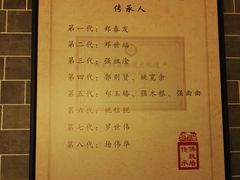 传承人
第一代：郑春发
第二代：邓世端
第三代：强祖淦
第四代：郭则贤、姚宽余
第五代：邓玉椿、强木根、强曲曲
第六代：姚信锐
第七代：罗世伟
第八代：杨伟华
佛跳墙
传承